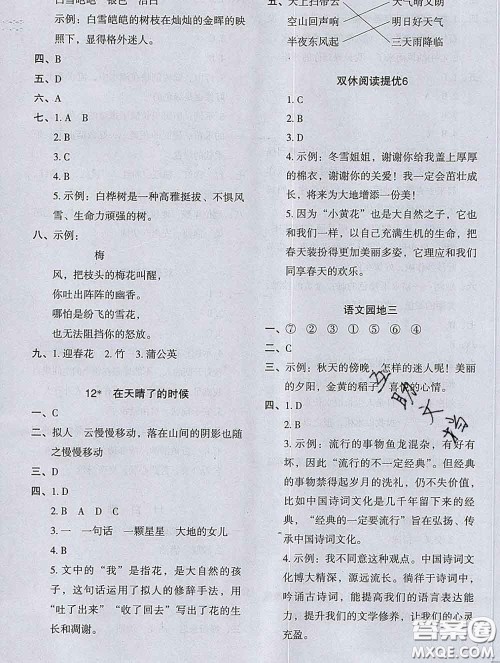 白雪皑皑 银色 洁白
示例：白雪皑皑的树枝在灿灿的金晖的映
照下，显得格外迷人。
四、D
五、D
六、A
七、1. A B
2. B
3. D
4. B
5. 示例：白桦树是一种高雅挺拔、不惧风
雪、生命力顽强的树。
八、示例：
梅
风，把枝头的梅花叫醒，
你吐出阵阵的幽香。
哪怕是纷飞的雪花，
也无法阻挡你的怒放。
九、1. 迎春花 2. 竹 3. 蒲公英
12* 在天晴了的时候
一、C
二、拟人 云慢慢移动，落在山间的阴影也随
之慢慢移动
三、D
四、1. D
2. B
3. 一 一句话 一颗星星 大地的女儿
4. B
5. 文中的“我”是指花，是大自然的孩
子，这句话运用了拟人的修辞手法，用
“吐了出来”“收了回去”写出了花的生
长和凋谢。
五、天上扫帚云 天气晴又朗
空山回声响 明日好天气
半夜东风起 三天雨降临
双休阅读提优6
1. C
2. B
3. C
4. 示例：冬雪姐姐，谢谢你给我盖上厚厚
的棉衣，谢谢你的关爱！我一定会茁壮成
长，将来为大地增添一份美！
5. 因为“小黄花”也是大自然之子，它也
和我们一样，以自己充满生机的生命，把
春天装扮得更加美丽多姿，它和我们一同
享春天的欢乐。
语文园地三
一、⑦ ② ③ ① ⑤ ⑥ ④
二、C
三、示例：秋天的傍晚 怎样的迷人呢！美丽
的夕阳，金黄的稻子 喜悦的心情。
四、1. D
2. C
3. C
4. 示例：流行的事物鱼龙混杂，有好有
坏，因此“流行的不一定经典”。但经典
的事物禁得起岁月的洗礼，仍不失价值。
比如中国诗词文化是几千年留下来的经
典，“经典的一定要流行”旨在弘扬、传
承中国诗词文化。
5. 示例：我不同意这种观点。中国诗词文
化博大精深，源远流长。徜徉于诗词中，
吟诵古诗词，能提高我们的语言表达能
力，提升我们的文学修养，让我们的心灵
充盈。
答案圈
MXQE.COM